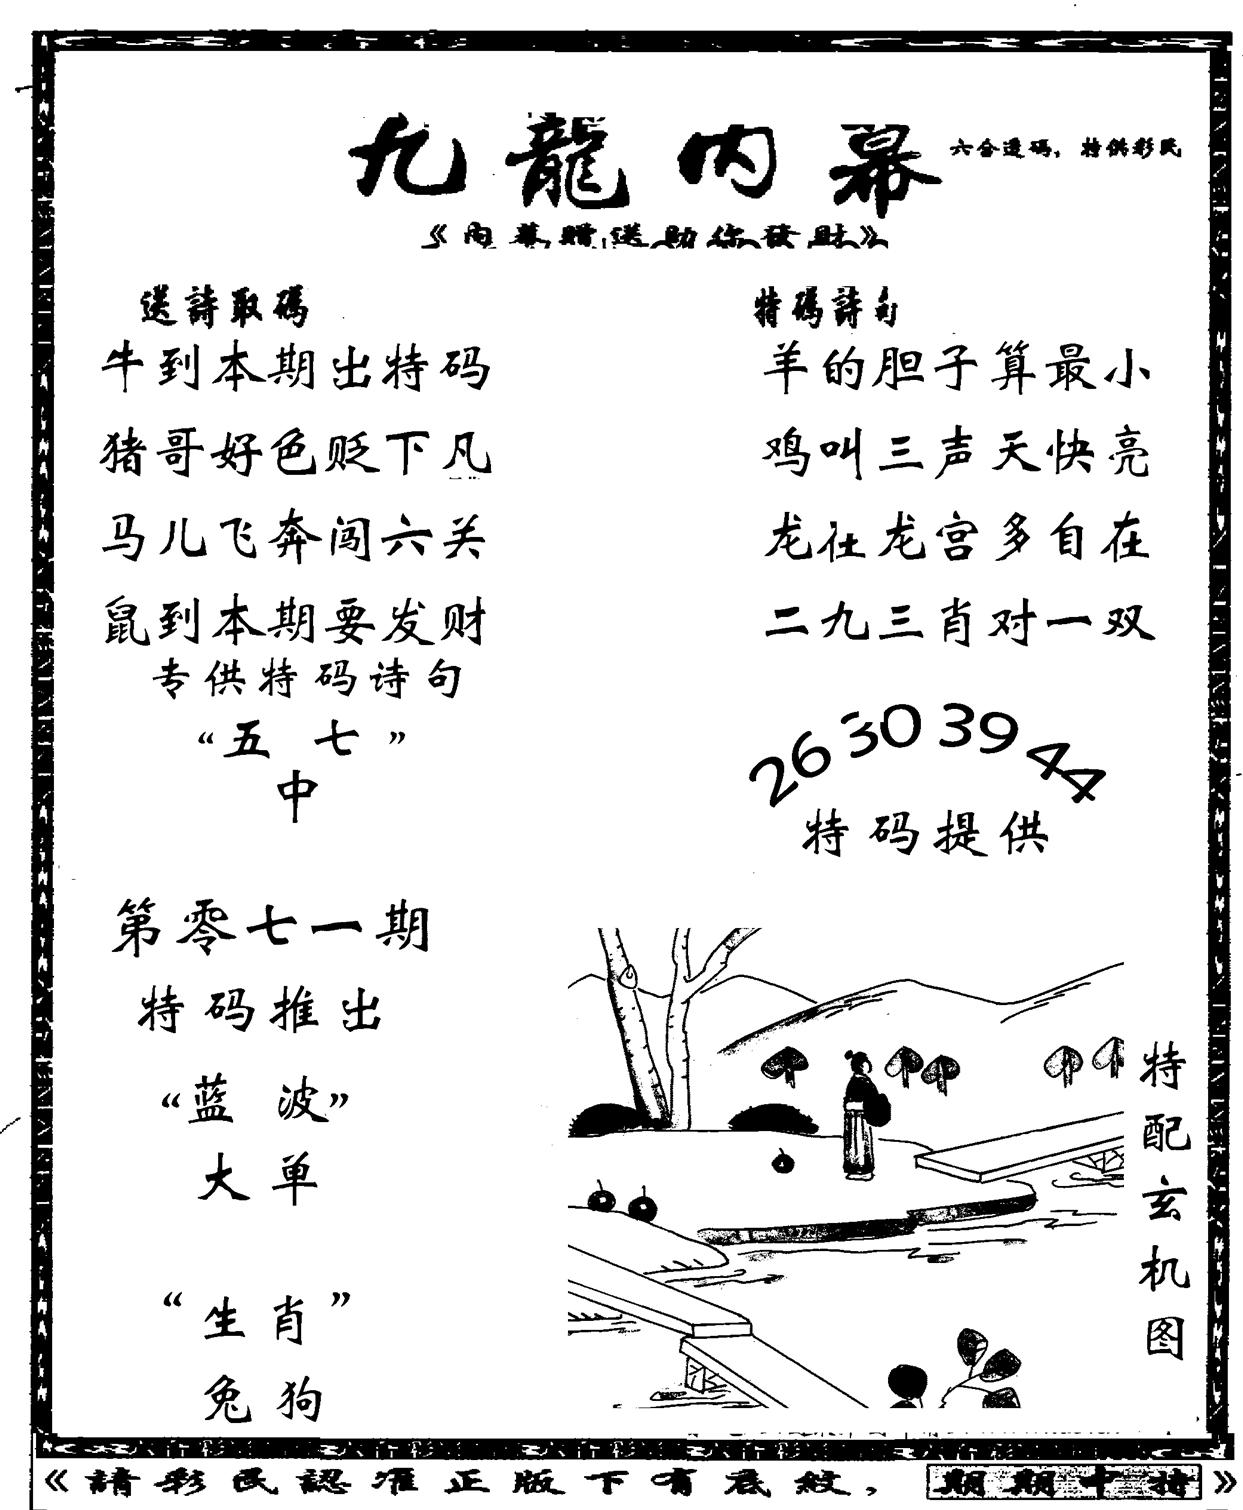 九龍内幕
六合透码，特供彩民
《内幕赠送助你發財》
送詩取碼
牛到本期出特码
猪哥好色贬下凡
马儿飞奔闯六关
鼠到本期要发财
专供特码诗句
“五 七”
中
特碼詩句
羊的胆子算最小
鸡叫三声天快亮
龙在龙宫多自在
二九三肖对一双
26 30 39 44
特码提供
第零七一期
特码推出
“蓝 波”
大单
“生肖”
兔狗
特配玄机图
《請彩民認准正版下有底紋，期期中特》